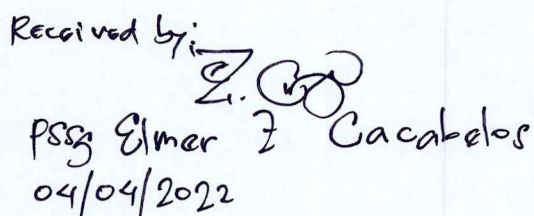 Received by:
PSSg Elmer Z Cacabelos
04/04/2022